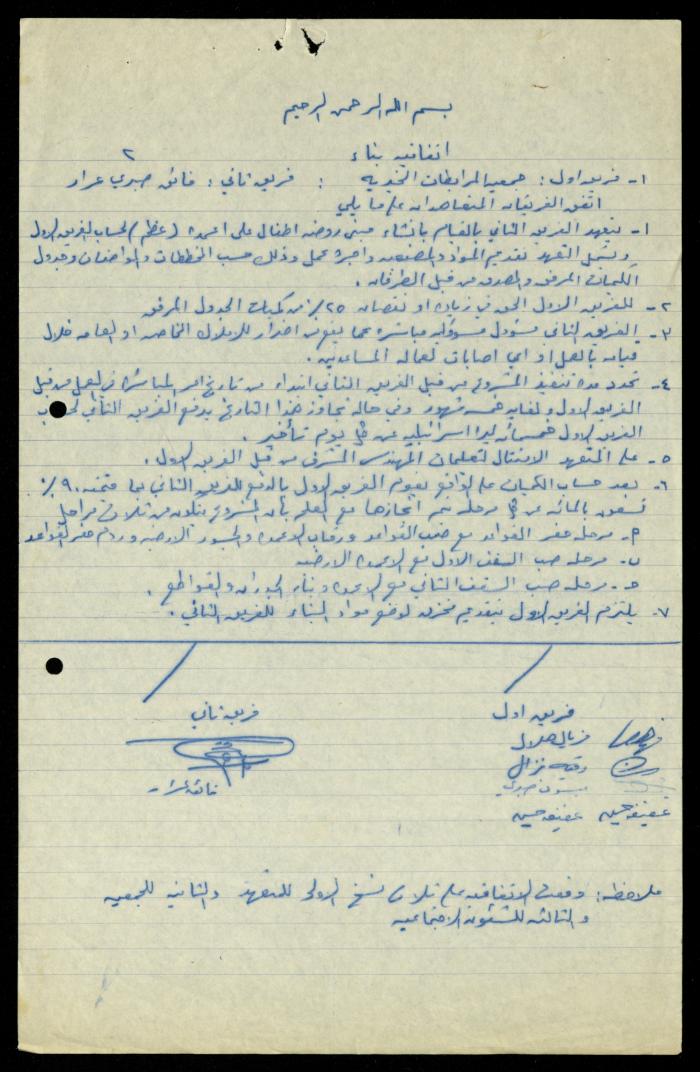 بسم الله الرحمن الرحيم
اتفاقية بناء ٢
١- فريق اول : جمعية المرابطات الخيرية : فريق ثاني : فائق صبري عرار
اتفق الفريقان المتعاقدان على ما يلي
١- يتعهد الفريق الثاني بالقيام بانشاء مبنى روضة اطفال على اعمدة (عظم) لحساب الفريق الاول
ويشمل التعهد تقديم المواد والمصنعية واجرة عمل وذلك حسب المخططات والمواصفات وجدول
الكميات المرفق والمصدق من قبل الطرفان .
٢- للفريق الاول الحق في زيادة او نقصان ٢٥٪ من كميات الجدول المرفق
٣- الفريق الثاني مسؤول مسؤولية مباشرة عما يقع من اضرار للاملاك الخاصة او العامة خلال
قيامه بالعمل او اي اصابات لعماله المساعدين .
٤- تحدد مدة تنفيذ المشروع من قبل الفريق الثاني ابتداء من تاريخ امر المباشرة في العمل من قبل
الفريق الاول ولغاية خمسة شهور وفي حالة تجاوز هذا التاريخ يدفع الفريق الثاني لحساب
الفريق الاول خمسمائة ليرة اسرائيلية عن كل يوم تأخير .
٥- على المتعهد الامتثال لتعليمات المهندس المشرف من قبل الفريق الاول .
٦- بعد حساب الكميات على الواقع يقوم الفريق الاول بالدفع للفريق الثاني بما قيمته ٩٠٪
تسعون بالمائة عن كل مرحلة تم انجازها مع العلم بأن المشروع يتكون من ثلاث مراحل
م- مرحلة حفر القواعد مع صب القواعد ورقاب الاعمدة والجسور الارضية وردم حفر القواعد
ب- مرحلة صب السقف الاول مع الاعمدة الارضية
ح- مرحلة صب السقف الثاني مع الاعمدة وبناء الجدران والقواطع .
٧- يلتزم الفريق الاول بتقديم مخزن لوضع مواد البناء للفريق الثاني .
فريق اول
فريق ثاني
فريال هلال
رقية نزال
ميسون صبري
عفيفة حسين عفيفة حسين
فائق عرار
ملاحظة: وقعت الاتفاقية على ثلاث نسخ الاولى للمتعهد والثانية للجمعية
والثالثة للشئون الاجتماعية